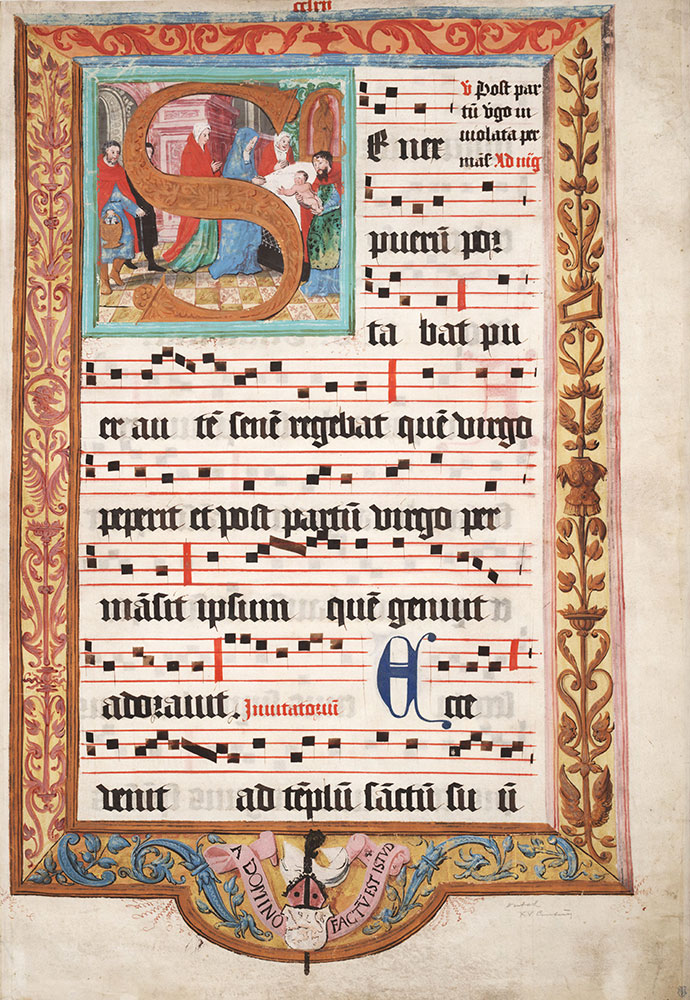 cclxii
℣ Post par
tū v̄go in
uiolata per
mās̄ Ad mḡ
S E nex
puerū por
ta bat pu
er au tē senē regebat quē virgo
peperit et post partū virgo per
māsit ipsum quē genuit
adorauit. Inuitatoriū
E cce
venit ad tēplū sāctū su ū
A DOMINO FACTV̄ EST ISTVD